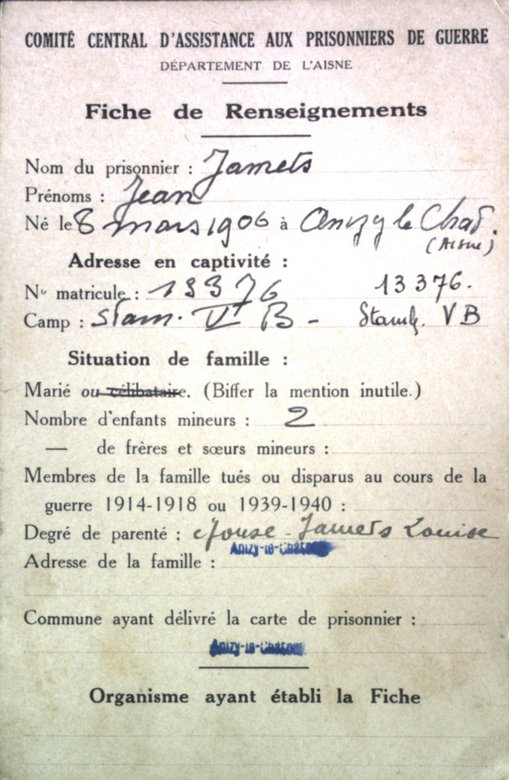 COMITÉ CENTRAL D'ASSISTANCE AUX PRISONNIERS DE GUERRE
DÉPARTEMENT DE L'AISNE
Fiche de Renseignements
Nom du prisonnier : Jamets
Prénoms : Jean
Né le 8 mars 1906 à Anizy le Chat.
(Aisne)
Adresse en captivité :
N° matricule : 13376 13376.
Camp : Stam. V B - Stamlg. V B
Situation de famille :
Marié ou célibataire. (Biffer la mention inutile.)
Nombre d'enfants mineurs : 2
— de frères et sœurs mineurs :
Membres de la famille tués ou disparus au cours de la
guerre 1914-1918 ou 1939-1940 :
Degré de parenté : épouse Jamets Louise
Anizy-le-Château
Adresse de la famille :
Commune ayant délivré la carte de prisonnier :
Anizy-le-Château
Organisme ayant établi la Fiche